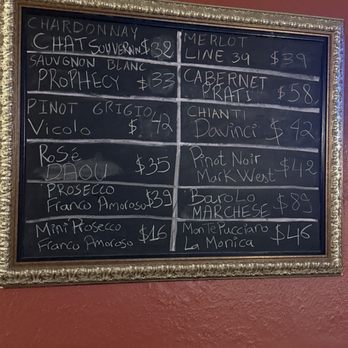 CHARDONNAY
CHAT SOUVERAIN $32
SAUVGNON BLANC
PROPHECY $33
PINOT GRIGIO
Vicolo $42
Rosé
DAOU $35
PROSECCO
Franco Amoroso $39
Mini Prosecco
Franco Amoroso $16
MERLOT
LINE 39 $39
CABERNET
PRATI $58
CHIANTI
Davinci $42
Pinot Noir
Mark West $42
BaroLo
MARCHESE $89
MontePucciano
La Monica $46